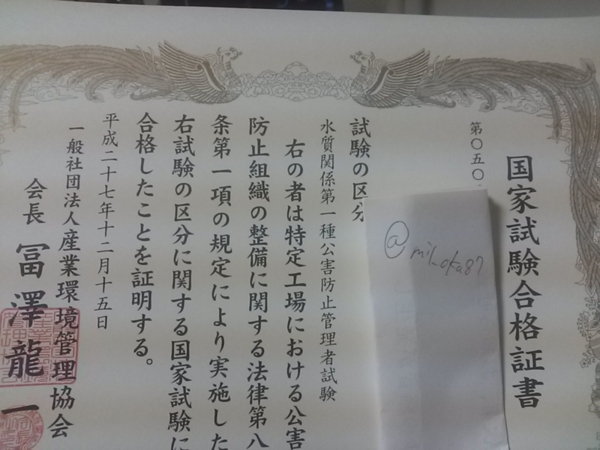 国家試験合格証書
第〇五〇
試験の区分
水質関係第一種公害防止管理者試験
右の者は特定工場における公害
防止組織の整備に関する法律第八
条第一項の規定により実施した
右試験の区分に関する国家試験に
合格したことを証明する。
平成二十七年十二月十五日
一般社団法人産業環境管理協会
会長 冨澤龍一